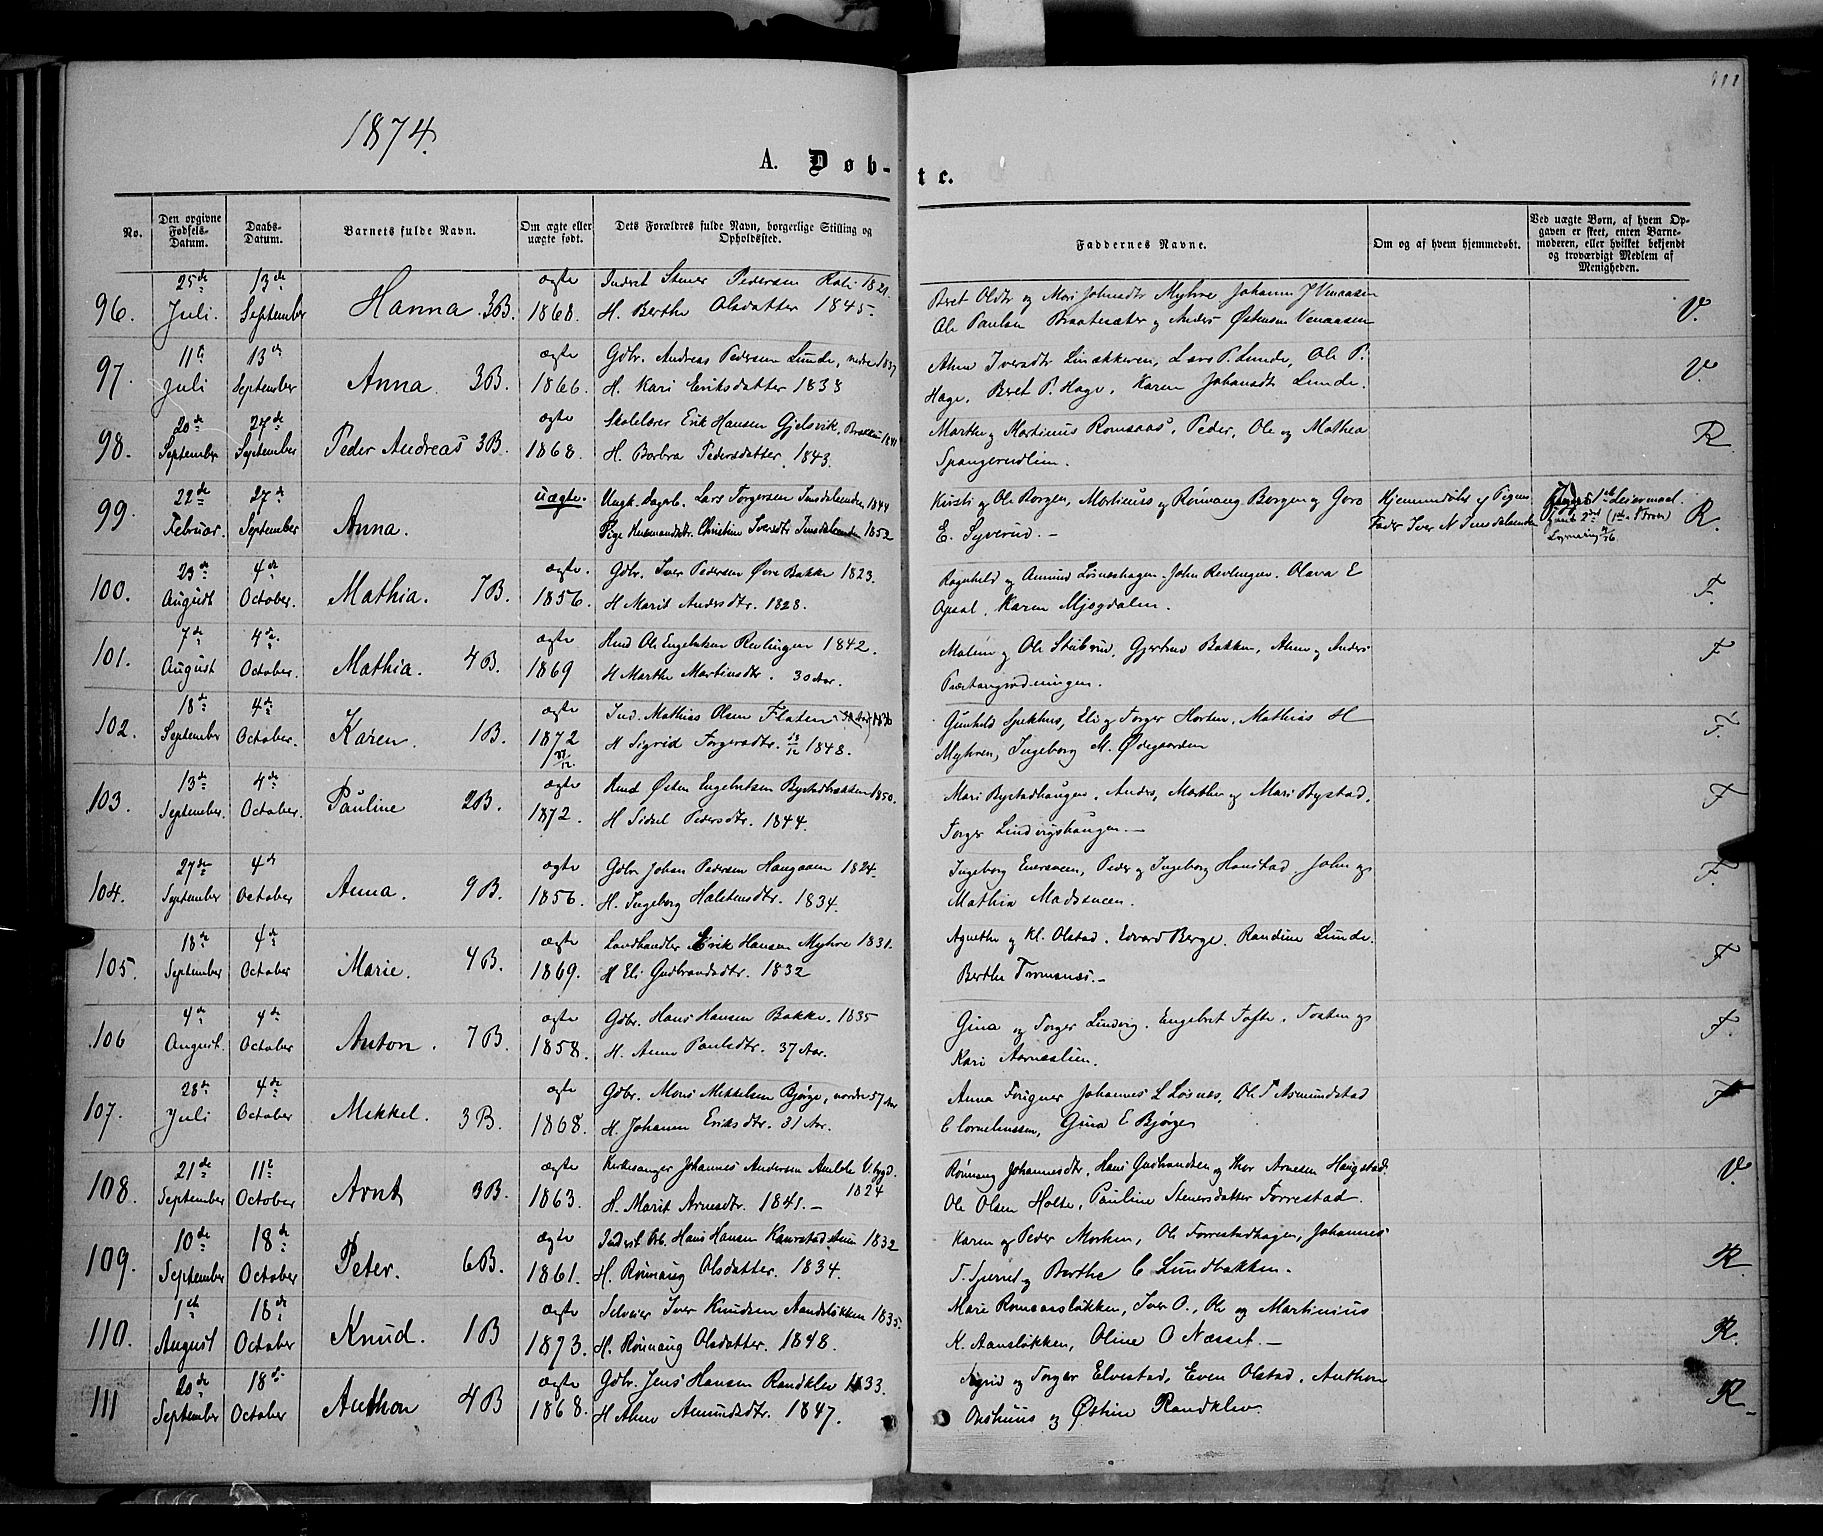 111
1874.
A. Døb-
te.
No.
Den opgivne Fødsels-Datum.
Daabs-Datum.
Barnets fulde Navn.
Om ægte eller uægte født.
Dets Forældres fulde Navn, borgerlige Stilling og Opholdssted.
Faddernes Navne.
Om og af hvem hjemmedøbt.
Ved uægte Børn, af hvem Opgaven er skeet, enten Barnemoderen, eller hvilket bekjendt og troværdigt Medlem af Menigheden.
96. 25de Juli. 13de September Hanna 3B. ægte 1868. Inderst Stener Pedersen 1821. H. Berthe Olsdatter 1845. Beret Olsdtr og Mari Johnsdtr Myhre Johannes J Venaasen
Ole Paulsen Braatesæter og Anders Østensen Venaasen V.
97. 11te Juli 13de September Anna. 3B. ægte 1866. Gdbr. Andreas Pedersen Lunde, nedre 1837 H. Kari Eriksdatter 1838 Ahne Iversdtr Linækkeren, Lars P. Lunde, Ole P.
Hage, Beret P. Hage, Karen Johansdtr Lunde. V.
98. 20de September 27de September Peder Andreas 3B. ægte 1868. Skolelærer Erik Hansen Gjelsvik, 1841 H. Barbra Pedersdatter 1843. Marthe og Martinus Romsaas, Peder, Ole og Mathea
Spangerudlien. R
99. 22de Februar. 27de September Anna. uægte. Ungk. Dagarb. Lars Torgersen Imsdalenden 1844 Pige Husmandsdtr. Christine Iversdtr Imsdalenden 1852 Kirsti og Ole Borgen, Martinus og Rønnaug Borgen og Goro
E. Syverud. Hjemmedøbt af Pigens
Fader Iver N Imsdalenden 1ste Leiermaal. R.
100. 23de August 4de October. Mathia. 7B. ægte. 1856. Gdbr. Iver Pedersen Øvre Bakke 1823. H Marit Andersdtr. 1828. Ragnhild og Amund Løsneshagen. John Revlingen. Olava E
Opsal. Karen Mjogdalen. F.
101. 7de August 4de October. Mathia. 4B. ægte 1869 Hmd Ole Engebretsen Revlingen 1842. H Marthe Martinusdtr. 30 Aar. og Ole Stubrud, Gjertrud Bakken, Ahne og Anders
F
102. 18de September 4de October. Karen. 1B. ægte 1872 Ind. Mathias Olsen Flaten H Sigrid Torgersdtr. 1848. Gunhild Spekhus, Eli og Torger Horten. Mathias H
Myhren, Ingeborg M. Ødegaarden F.
103. 13de September. 4de October. Pauline 2B. ægte 1872. Hmd Østen Engebretsen Bystadbakken 1850. H Sidsel Pedersdtr. 1844. Mari Bystadhaugen, Anders, Marthe og Mari Bystad.
Torger Lindvigshaugen. F
104. 27de September 4de October Anna. 9B. ægte 1856. Gdbr Johan Pedersen Haugaaen 1824. H. Ingeborg Halstensdtr. 1834. Ingeborg Enersveen, Peder og Ingeborg Hanstad. John og
Mathia Madssveen. F.
105. 18de September 4de October Marie. 4B. ægte 1869. Landhandler Erik Hansen Myhre 1831. H Eli Gudbrandsdtr. 1832 Agnethe og Kl. Olstad. Edvard Berge. Randine Lunde.
Berthe Tromsnæs. F
106 4de August. 4de October Anton. 7B. ægte 1858. Gdbr. Hans Hansen Bakke. 1835 H. Anne Paulsdtr. 37 Aar. Gina og Torger Lindvig. Engebret Tofte. Torsten og
Kari Aarneslien. F.
107. 28de Juli 4de October Mekkel. 3B. ægte 1868. Gdbr. Mons Mekkelsen Bjørge, nordre 57 Aar H. Johanne Eriksdtr. 31 Aar. Anna Forigner Johannes L Løsnes, Ole T Asmundstad
C Cornelinssen, Gina E Bjørge F
108. 21de September 11te October Arnt 3B. ægte 1863. Kirkesanger Johannes Andersen Amlde V. bygd. 1824 H. Marit Arnesdtr. 1841. Rønnaug Johannesdtr, Hans Gudbrandsen og Thor Arnesen Haugstad.
Ole Olsen Holte, Pauline Stenersdatter Forrestad. V.
109. 10de September 18de October Peter. 6B. ægte 1861. Inderst Arb. Hans Hansen 1832 H. Rønnaug Olsdatter. 1834. Karen og Peder Morken, Ole Forrestadhagen, Johannes
T. og Berthe C Lundbakken. R.
110. 1ste August 18de October Knud. 1B ægte 1873. Selveier Iver Knudsen Aandsløkken 1835. H. Rønnaug Olsdatter. 1848. Mari Romsaasløkken, Iver O., Ole og Martinius
K. Aansløkken, Oline O Næsset. R.
111 20de September 18de October Anthon 4B ægte 1868. Gdbr. Jens Hansen Randklev 1833. H Ahne Amundsdtr. 1847. Sigrid og Torger Elvestad, Even Olstad. Anthon
og Østine Randklev. R